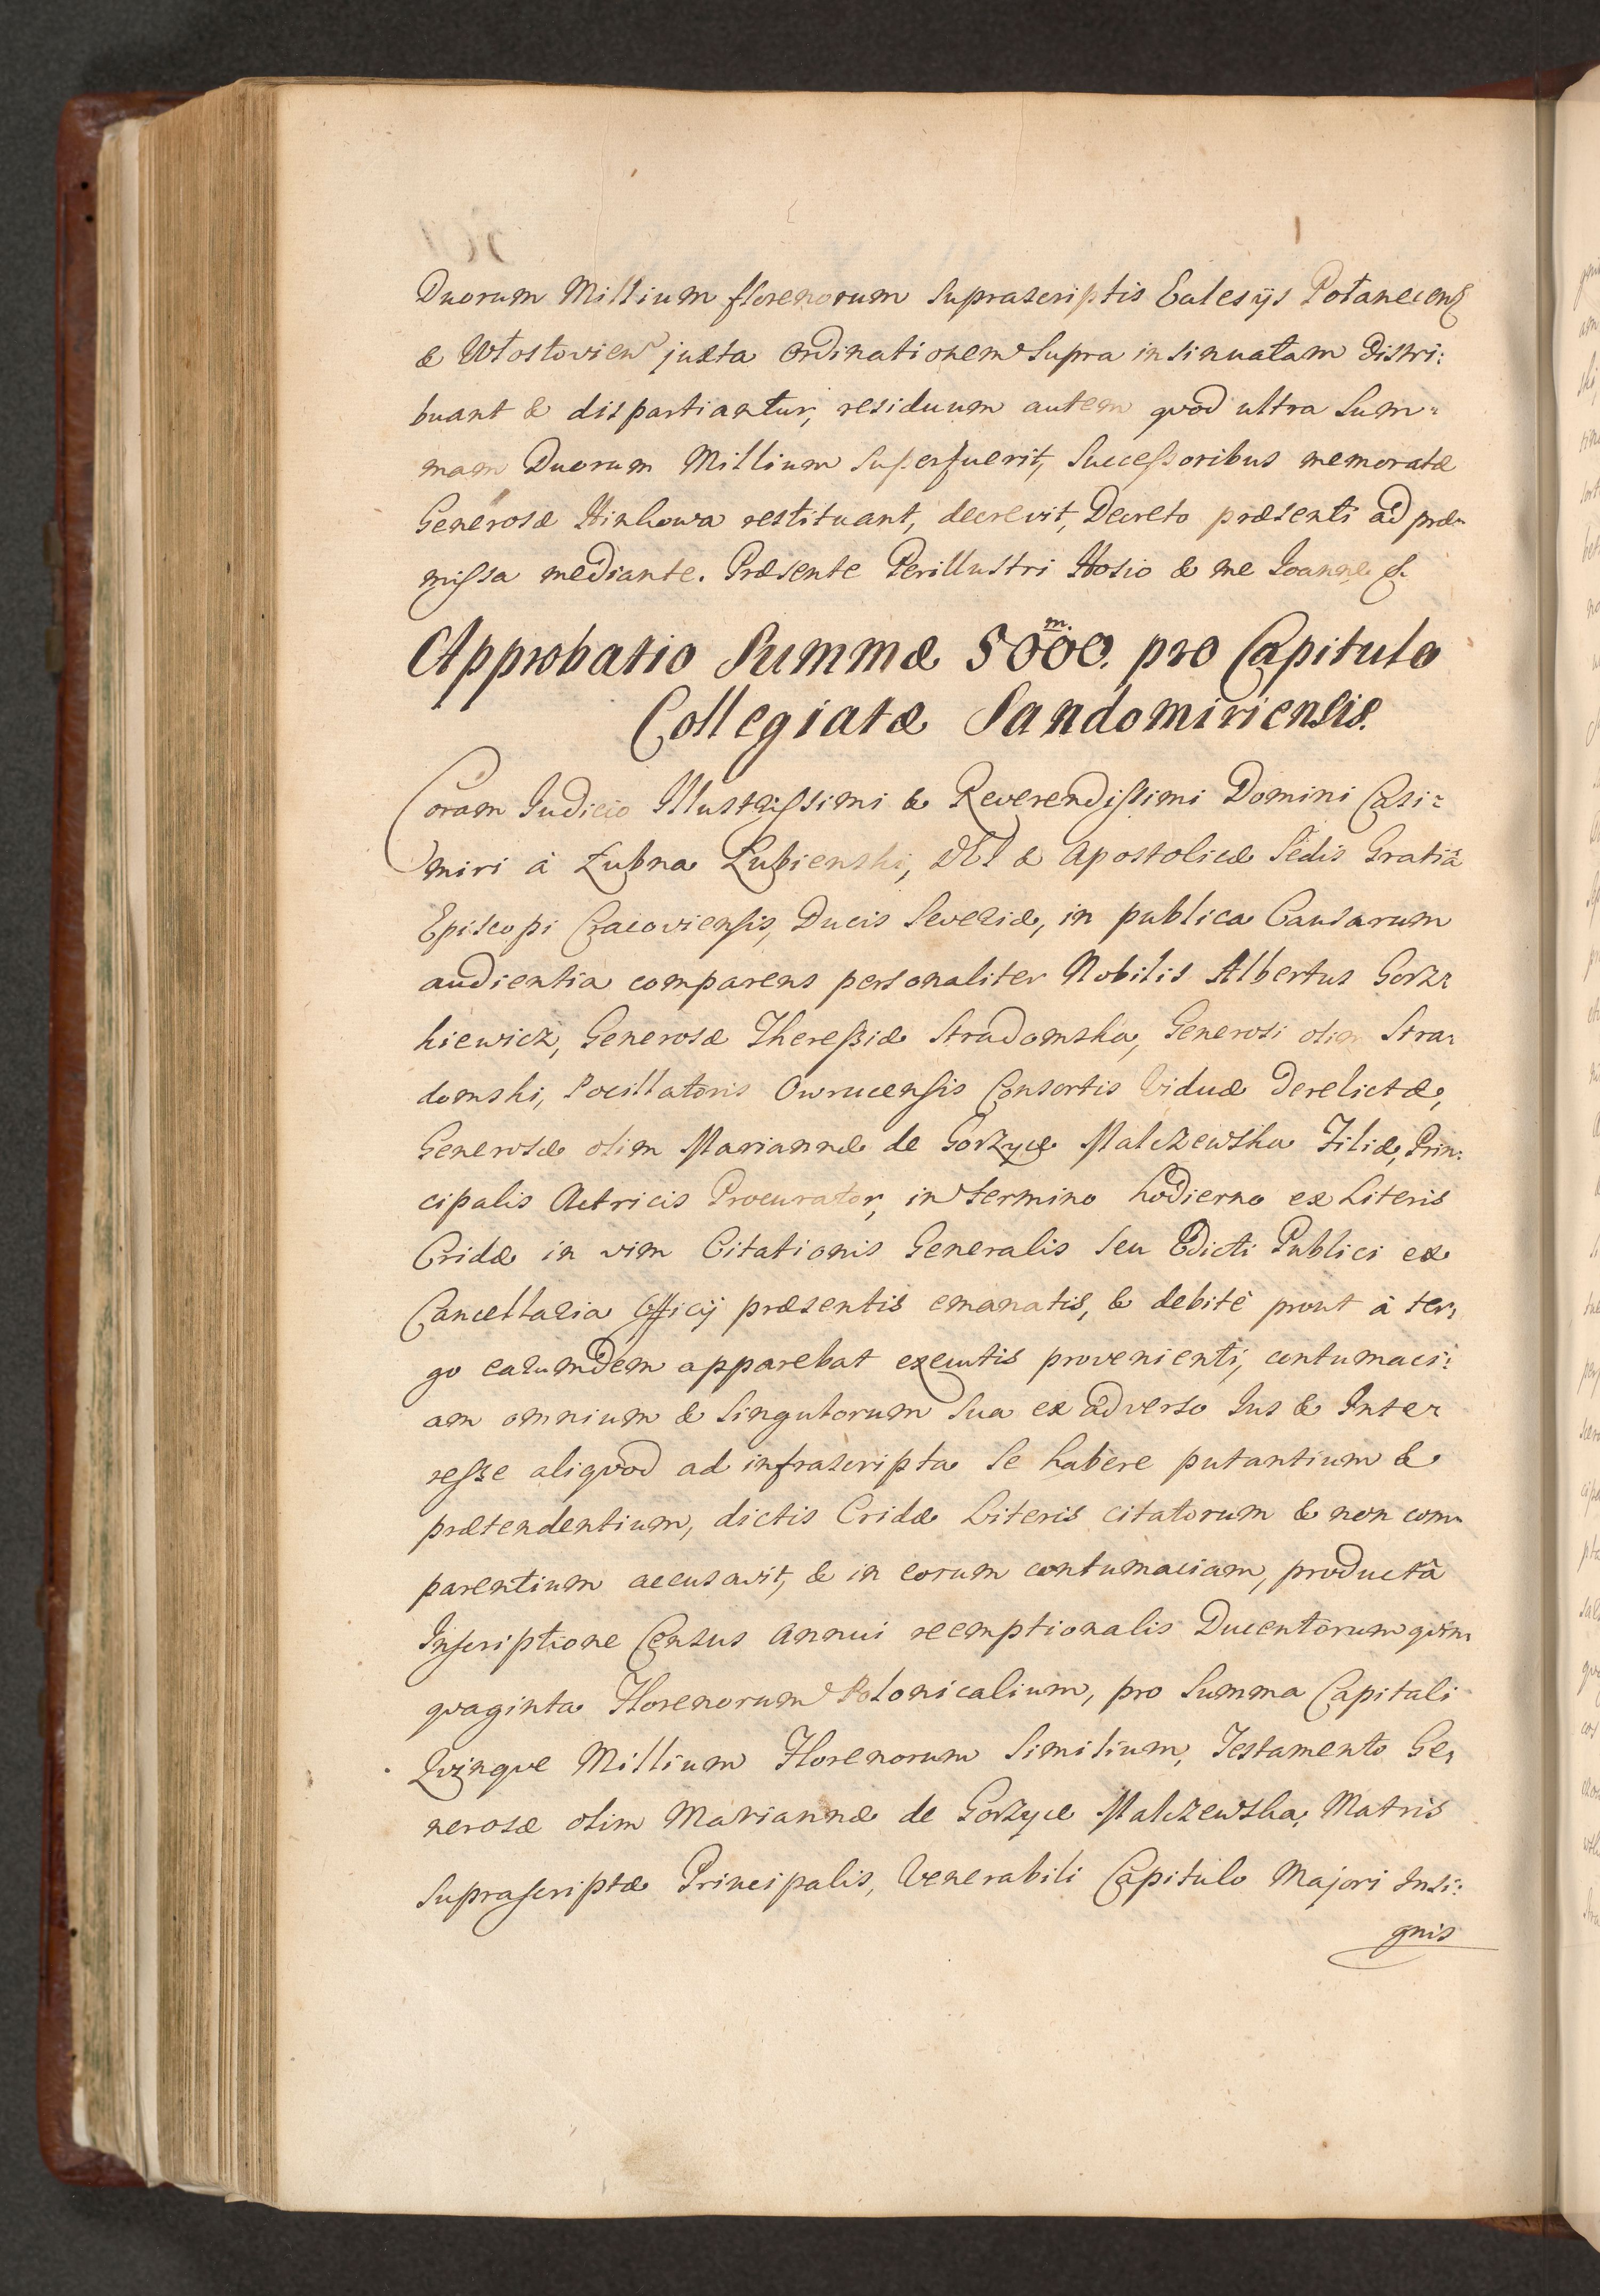 Duorum Millium florenorum supra scriptis Ecclesijs Połanecens
& Włostovien juxta ordinationem supra insinuatam distri:
buant & dispartiantur, residuum autem quod ultra Sum-
mam Duorum Millium superfuerit, Successoribus memoratæ
Generosæ Hinkowa restituant, decrevit, Decreto præsenti ad præ-
missa mediante. Præsente Perillustri Hosio & me Joanne &
Approbatio Summæ 5000. pro Capitulo
m.
Collegiatæ Sandomiriensis.
Coram Judicio Illustrissimi & Reverendissimi Domini Casi-
miri à Łubna Łubienski, DEI & Apostolicæ Sedis Gratiâ
Episcopi Cracoviensis, Ducis Severiæ, in publica Causarum
audientia comparens personaliter Nobilis Albertus Gorz-
kiewicz, Generosæ Theressiæ Stradomska, Generosi olim Stra-
domski, Pocillatoris Owrucensis Consortis Viduæ Derelictæ,
Generosæ olim Mariannæ de Gorzyce Malczewska Filiæ, Prin:
cipalis Actricis Procurator, in termino hodierno ex Literis
Cridæ in vim Citationis Generalis seu Edicti Publici ex
Cancellaria Officij præsentis emanatis, & debitè prout à ter-
go earumdem apparebat executis provenienti, contumaci:
am omnium & Singulorum sua ex adverso Jus & Inter-
resse aliquod ad infrascripta se habere putantium &
prætendentium, dictis Cridæ Literis citatorum & non com-
parentium accusavit, & in eorum contumaciam, productâ
Inscriptione Census annui reemptionalis Ducentorum quin-
quaginta Florenorum Polonicalium, pro Summa Capitali
Quinque Millium Florenorum Similium, Testamento Ge-
nerosæ olim Mariannæ de Gorzyce Malczewska, Matris
suprascriptæ Principalis, Venerabili Capitulo Majori Insi:
gnis